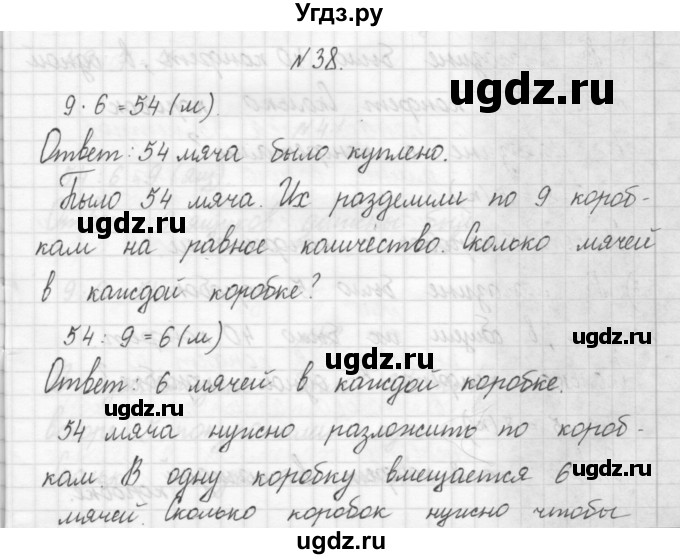 Угдз.ру
№38.
ugdz.ru
9 · 6 = 54 (м).
Ответ: 54 мяча было куплено.
ugdz.ru
Было 54 мяча. Их разделили по 9 короб-
ugdz.ru
кам на равное количество. Сколько мячей
в каждой коробке?
54 : 9 = 6 (м)
ugdz.ru
ugdz.ru
Ответ: 6 мячей в каждой коробке.
ugdz.ru
54 мяча нужно разложить по короб-
ugdz.ru
кам. В одну коробку вмещается 6
мячей. Сколько коробок нужно чтобы
ugdz.ru